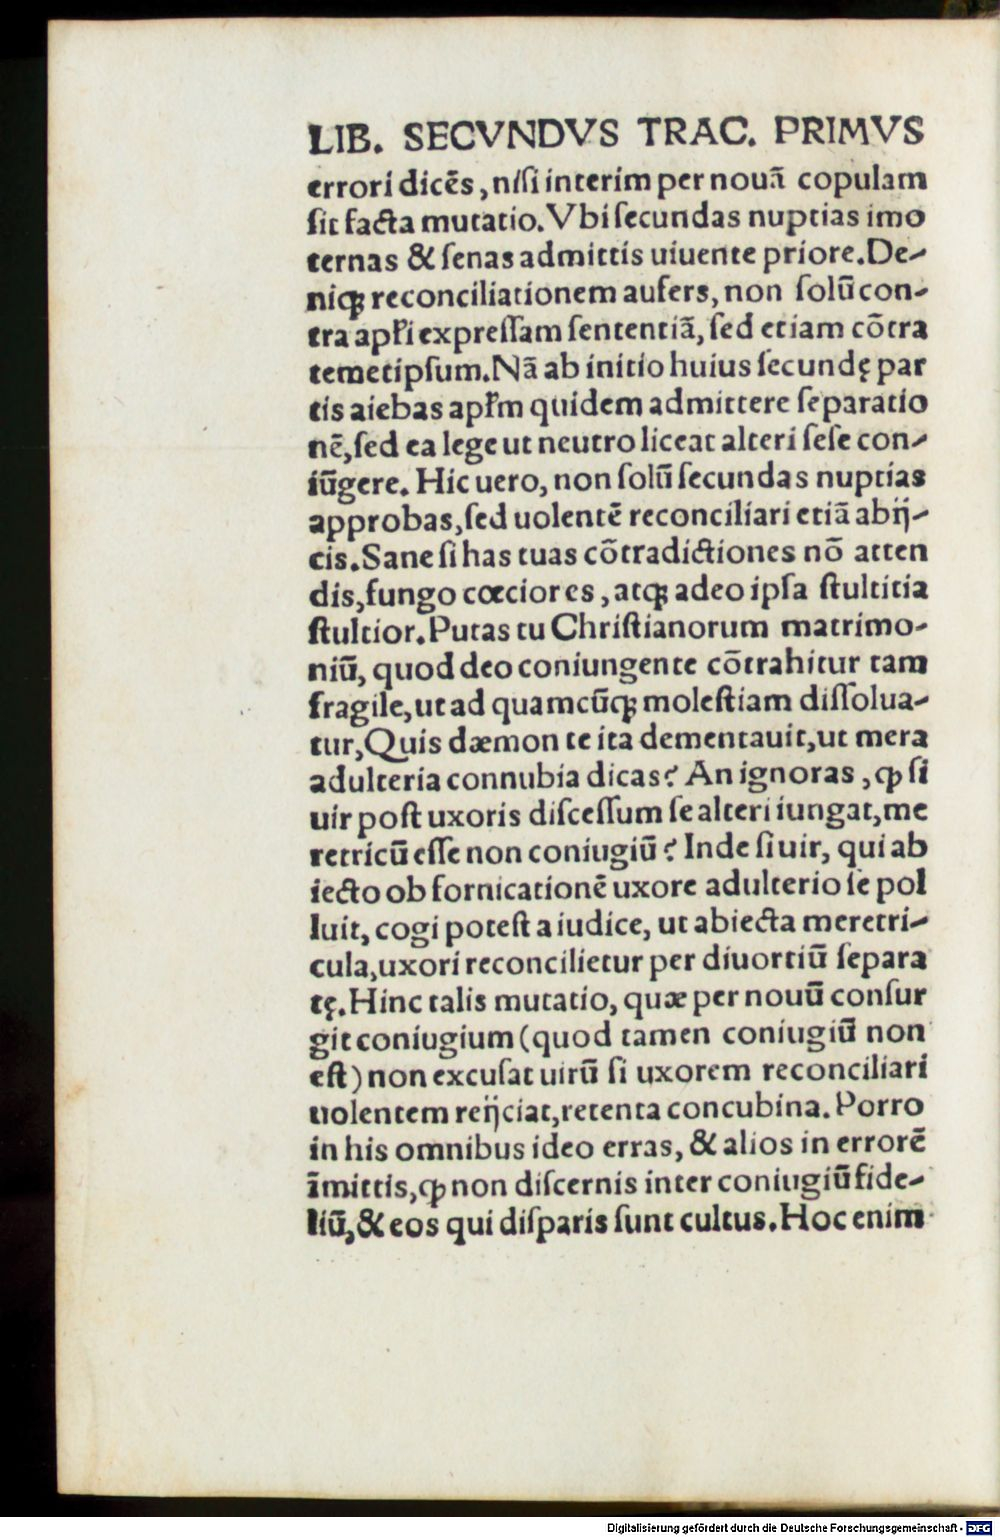 LIB. SECVNDVS TRAC. PRIMVS
errori dicẽs, niſi interim per nouã copulam
ſit facta mutatio. Vbi ſecundas nuptias imo
ternas & ſenas admittis uiuente priore. De-
niqꝫ reconciliationem aufers, non ſolũ con-
tra apłi expreſſam ſententiã, ſed etiam cõtra
temetipſum. Nã ab initio huius ſecundę par
tis aiebas apłm quidem admittere ſeparatio
nẽ, ſed ea lege ut neutro liceat alteri ſeſe con-
iũgere. Hic uero, non ſolũ ſecundas nuptias
approbas, ſed uolentẽ reconciliari etiã abij-
cis. Sane ſi has tuas cõtradictiones nõ atten
dis, fungo cœcior es, atqꝫ adeo ipſa ſtultitia
ſtultior. Putas tu Chriſtianorum matrimo-
niũ, quod deo coniungente cõtrahitur tam
fragile, ut ad quamcũqꝫ moleſtiam diſſolua-
tur, Quis dæmon te ita dementauit, ut mera
adulteria connubia dicas? An ignoras, ꝙ ſi
uir poſt uxoris diſceſſum ſe alteri iungat, me
retricũ eſſe non coniugiũ? Inde ſi uir, qui ab
iecto ob fornicationẽ uxore adulterio ſe pol
luit, cogi poteſt a iudice, ut abiecta meretri-
cula, uxori reconcilietur per diuortiũ ſepara
tę. Hinc talis mutatio, quæ per nouũ conſur
git coniugium (quod tamen coniugiũ non
eſt) non excuſat uirũ ſi uxorem reconciliari
uolentem reijciat, retenta concubina. Porro
in his omnibus ideo erras, & alios in errorẽ
ĩmittis, ꝙ non diſcernis inter coniugiũ fide-
liũ, & eos qui diſparis ſunt cultus. Hoc enim
Digitalisierung gefördert durch die Deutsche Forschungsgemeinschaft - DFG